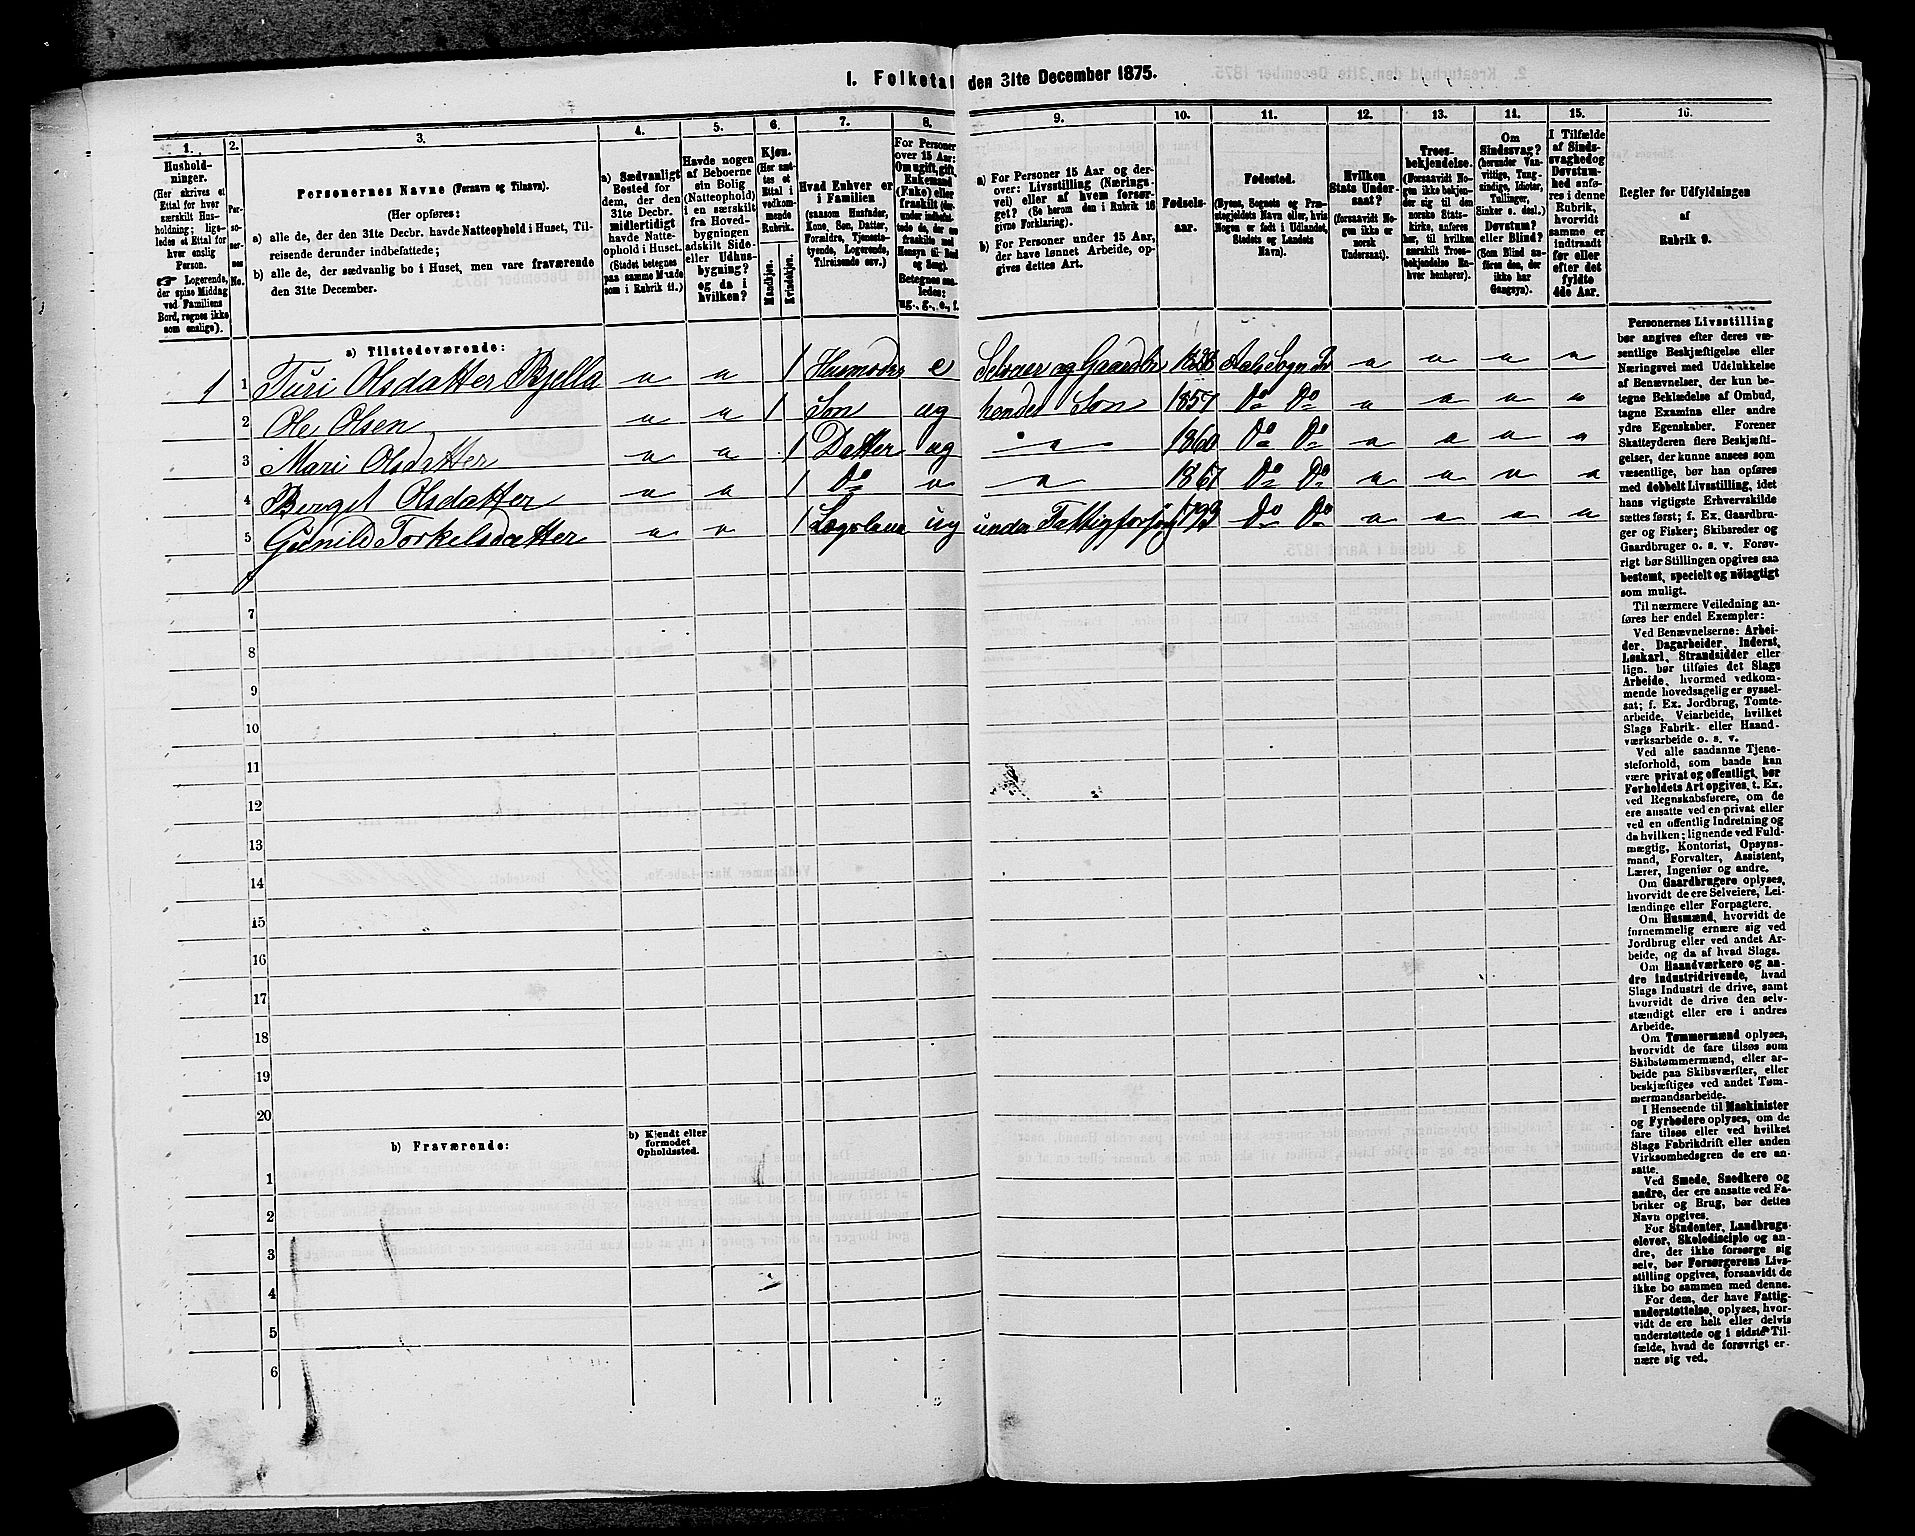 I. Folketal den 31te December 1875.
1. 2. 3. 4. 5. 6. 7. 8. 9. 10. 11. 12. 13. 14. 15. 16.
Hushold-
ninger.
(Her skrives et
Ettal for hver
særskilt Hus-
holdning; lige-
ledes et Ettal for
hver enslig
Person.
☞ Logerende,
der spise Middag
ved Familiens
Bord, regnes ikke
som enslige).
Per-
so-
ner-
nes
No.
Personernes Navne (Fornavn og Tilnavn).
(Her opføres:
a) alle de, der den 31te Decbr. havde Natteophold i Huset, Til-
reisende derunder indbefattede;
b) alle de, der sædvanlig bo i Huset, men vare fraværende
den 31te December.
a) Sædvanligt
Bosted for
dem, der den
31te Decbr.
midlertidigt
havde Natte-
ophold i Huset.
(Stedet betegnes
paa samme Maade
som i Rubrik 11.)
Havde nogen
af Beboerne
sin Bolig
(Natteophold)
i en særskilt
fra Hoved-
bygningen
adskilt Side-
eller Udhus-
bygning?
og da i
hvilken?
Kjøn.
(Her sæt-
tes et
Ettal i
vedkom-
mende
Rubrik.
Mandkjøn.
Kvindekjøn.
Hvad Enhver er
i Familien
(saasom Husfader,
Kone, Søn, Datter,
Forældre, Tjeneste-
tyende, Logerende,
Tilreisende osv.)
For Personer
over 15 Aar:
Om ugift, gift,
Enkemand
(Enke) eller
fraskilt
Betegnes saa-
ledes:
ug., g., e., f.
a) For Personer 15 Aar og der-
over: Livsstilling (Nærings-
vei) eller af hvem forsør-
get? (Se herom den i Rubrik 16
givne Forklaring).
b) For Personer under 15 Aar,
der have lønnet Arbeide, op-
gives dettes Art.
Fødsels-
aar.
Fødested.
(Byens, Sognets og Præ-
stegjeldets Navn eller, hvis
Nogen er født i Udlandet,
Stedets og Landets
Navn).
Hvilken
Stats Under-
saat?
(forsaavidt No-
gen ikke er
norsk
Undersaat).
Troes-
bekjendelse.
(Forsaavidt No-
gen ikke bekjen-
der sig til den
norske Stats-
kirken, anføres
her, til hvilken
særskilt Troes-
bekjendelse En-
hver henhører).
Om
Sindssvag?
(herunder Van-
vittige, Tung-
sindige, Idioter,
Tullinger,
Sinker o. desl.)
Døvstum?
eller Blind?
(Som Blind an-
føres den, der
ikke har
Gangsyn).
I Tilfælde
af Sinds-
svaghed og
Døvstum-
hed anfø-
res i denne
Rubrik,
hvorvidt
samme er
indtraadt
før eller
efter det
fyldte
4de Aar.
Regler for Udfyldningen
af
Rubrik 9.
a) Tilstedeværende:
1 1 Turi Olsdatter Bjella " " 1 Husmoder e Selveier og Gaardbr 1828 Aals Sogn Pr " " " "
2 Ole Olsen " " 1 Søn ug hendes Søn 1857 Do Do " " " "
3 Mari Olsdatter " " 1 Datter ug " 1860 Do Do " " " "
4 Berget Olsdatter " " 1 Do " " 1867 Do Do " " " "
5 Gunild Torkelsdatter " " 1 Lægslem ug under Fattigforsørg 1793 Do Do " " " "
7
8
9
10
11
12
13
14
15
16
17
18
19
20
b) Fraværende:
b) Kjendt eller
formodet
Opholdssted.
1
2
3
4
5
6
Personernes Livsstilling
bør angives efter deres væ-
sentlige Beskjæftigelse eller
Næringsvei med Udelukkelse
af Benævnelser, der kun be-
tegne Beklædelse af Ombud,
tagne Examina eller andre
ydre Egenskaber. Forener
Skatteyderen flere Beskjæfti-
gelser, der kunne ansees som
væsentlige, bør han opføres
med dobbelt Livsstilling, idet
hans vigtigste Erhvervskilde
sættes først; f. Ex. Gaardbru-
ger og Fisker; Skibsreder og
Gaardbruger o. s. v. Forøv-
rigt bør Stillingen opgives saa
bestemt, specielt og nöiagtigt
som muligt.
Til nærmere Veiledning an-
føres her endel Exempler:
Ved Benævnelserne: Arbei-
der, Dagarbeider, Inderst,
Løskarl, Strandsidder eller
lign. bør tilføies det Slags
Arbeide, hvormed vedkom-
mende hovedsagelig er syssel-
sat; f. Ex. Jordbrug, Tomte-
arbeide, Veiarbeide, hvilket
Slags Fabrik- eller Haand-
værksarbeide o. s. v.
Ved alle saadanne Tjene-
steforhold, som baade kan
være privat og offentligt, bør
Forholdets Art opgives, t. Ex.
ved Regnskabsførere, om de
ere ansatte ved en privat eller
ved en offentlig Indretning og
da hvilken; lignende ved Fuld-
mægtig, Kontorist, Opsyns-
mand, Forvalter, Assistent,
Lærer, Ingeniør og andre.
Om Gaardbrugere oplyses,
hvorvidt de ere Selveiere, Lei-
lændinge eller Forpagtere.
Om Husmænd, hvorvidt de
fornemmelig ernære sig ved
Jordbrug eller ved andet Ar-
beide, og da af hvad Slags.
Om Haandværkere og an-
dre Industridrivende, hvad
Slags Industri de drive, samt
hvorvidt de drive den selv-
stændigt eller ere i andres
Arbeide.
Om Tømmermænd oplyses,
hvorvidt de fare tilsøs som
Skibstømmermænd, eller ar-
beide paa Skibsværfter, eller
beskjæftiges ved andet Tøm-
mermandsarbeide.
I Henseende til Maskinister
og Fyrbødere oplyses, om de
fare tilsøs eller ved hvilket
Slags Fabrikdrift eller anden
Virksomhedsgren de ere an-
satte.
Ved Smede, Snedkere og
andre, der ere ansatte ved Fa-
briker og Brug, bør dettes
Navn opgives.
For Studenter, Landbrugs-
elever, Skoledisciple og an-
dre, der ikke forsørge sig
selv, bør Forsørgerens Livs-
stilling opgives, forsaavidt de
ikke bo sammen med denne.
For dem, der have Fattig-
understøttelse, oplyses, hvor-
vidt de ere helt eller delvis
understøttede og i sidste Til-
fælde, hvad de forøvrigt er-
nære sig ved.